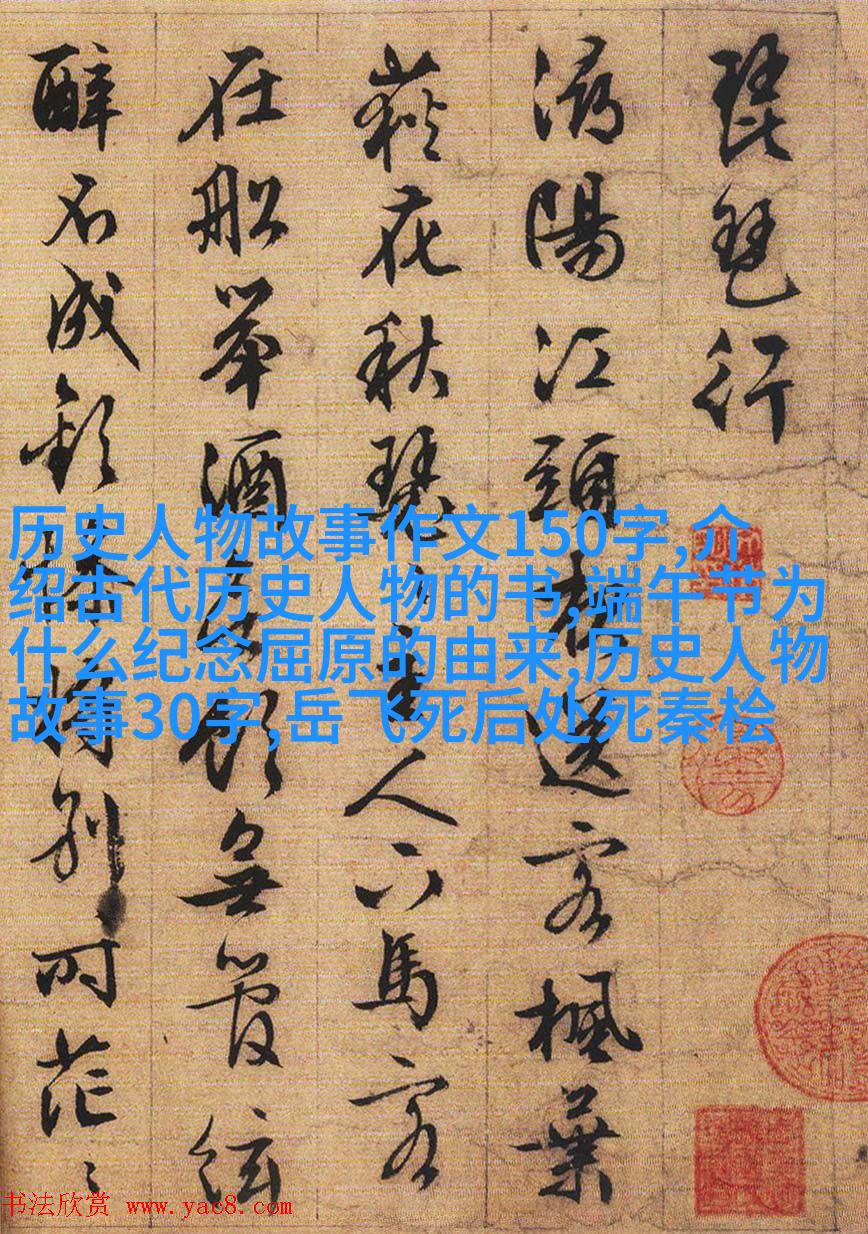 琵琶行
潯陽江頭送客楓葉
荻花秋瑟主人下馬客
在船举酒飲無管絃
醉不成歡慘將別时茫〻
历史人物故事作文150字,介
绍古代历史人物的书,端午节为
什么纪念屈原的由来,历史人物
故事30字,岳飞死后处死秦桧
书法欣赏 www.yac8.com